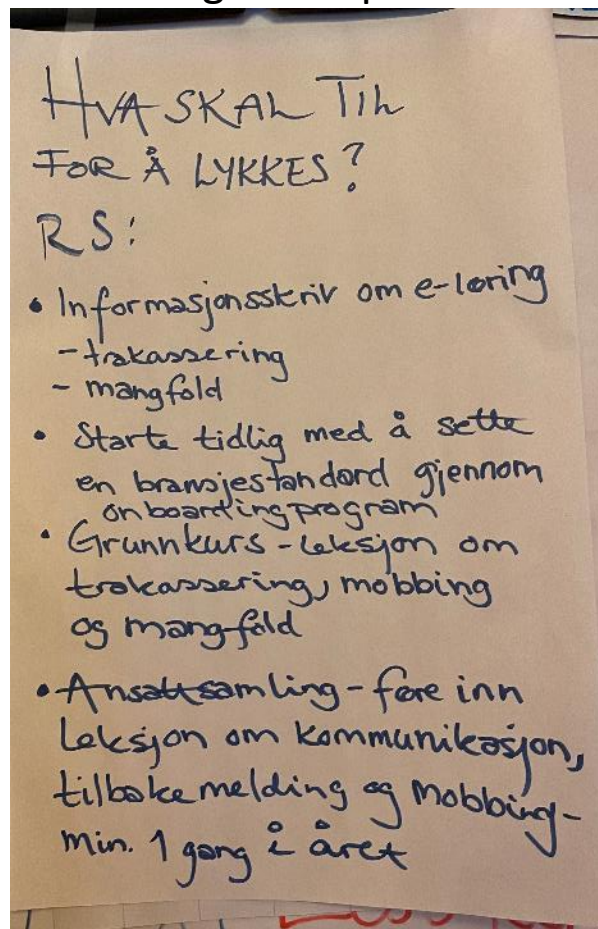 HVA SKAL TIL
FOR Å LYKKES?
RS:
• Informasjonsskriv om e-læring
- trakassering
- mangfold
• Starte tidlig med å sette
en bransjestandard gjennom
onboardingprogram
• Grunnkurs - leksjon om
trakassering, mobbing
og mangfold
• Ansattsamling - føre inn
Leksjon om kommunikasjon,
tilbakemelding og mobbing -
min. 1 gang i året